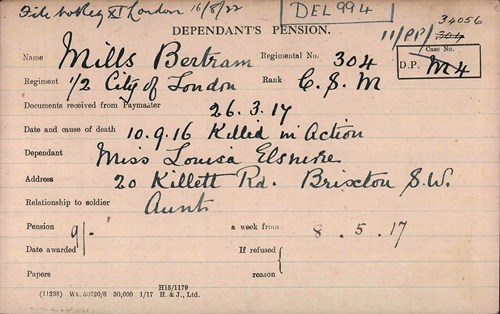 File to Reg XI London 16/8/22
DEL 994
34056
DEPENDANT'S PENSION.
11/PP/304
Name Mills Bertram Regimental No. 304
Case No.
D.P. M4
Regiment 1/2 City of London Rank C.S.M
Documents received from Paymaster 26.3.17
Date and cause of death 10.9.16 Killed in Action
Dependant Miss Louisa
Address 20 Killett Rd. Brixton S.W.
Relationship to soldier Aunt
Pension 9/- a week from 8.5.17
Date awarded If refused
Papers reason
H15/1179
(11238) Wt. 50720/6 30,000 1/17 H. & J., Ltd.